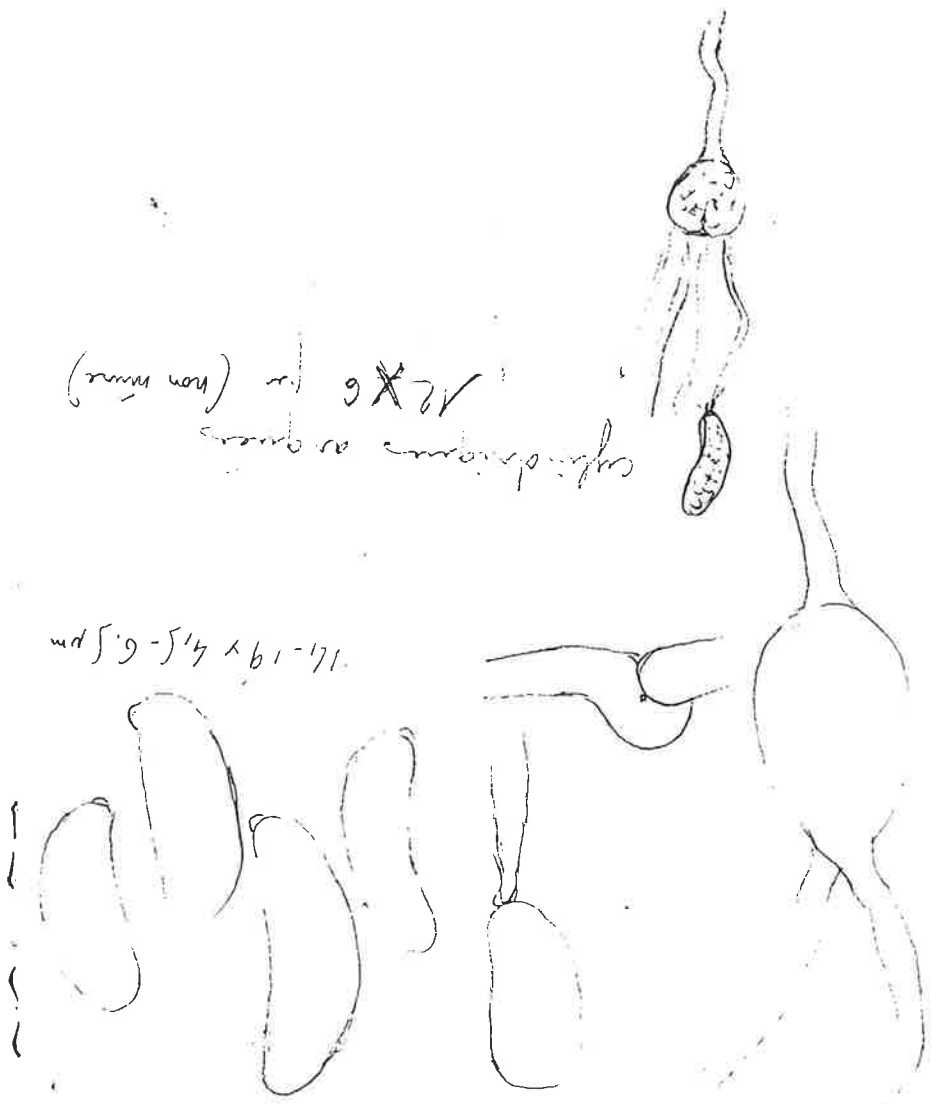 14-19 x 4,5-6,5 µm
cylindriques arquées
12 X 6 µ (non mûre)